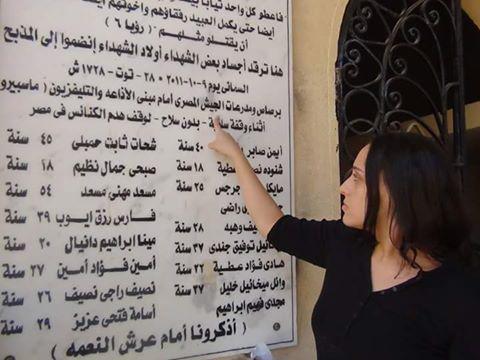 فاعطو كل واحد ثيابا بيضا
أيضا حتى يكمل العبيد رفقاؤهم وأخوتهم
أن يقتلو مثلهم " ( رؤيا ٦ )
هنا ترقد أجساد بعض الشهداء أولاد الشهداء إنضموا إلى المذبح
السمائى يوم ٩-١٠-٢٠١١ - ٢٨ توت - ١٧٢٨ ش
برصاص ومدرعات الجيش المصرى أمام مبنى الأذاعه والتليفزيون ( ماسبيرو
أثناء وقفة - بدون سلاح - لوقف هدم الكنائس فى مصر
أيمن صابر سنة شحات ثابت حميلى ٤٥ سنة
شنوده عطية ١٨ سنة صبحى جمال نظيم ١٨ سنة
مايكل جرجس ٢٥ سنة مسعد مهنى مسعد ٥٤ سنة
راضى فارس رزق ايوب ٣٩ سنة
وهبه ٢٨ سنة مينا ابراهيم دانيال ٢٠ سنة
توفيق جندى ٣٧ سنة أمين فؤاد أمين ٢٧ سنة
هادى فؤاد عطية ٢٢ سنة نصيف راجى نصيف ٢٦ سنة
وائل ميخائيل خليل ٢٧ سنة أسامة فتحى عزيز ٢٩ سنة
مجدى فهيم ابراهيم
( أذكرونا أمام عرش النعمه )